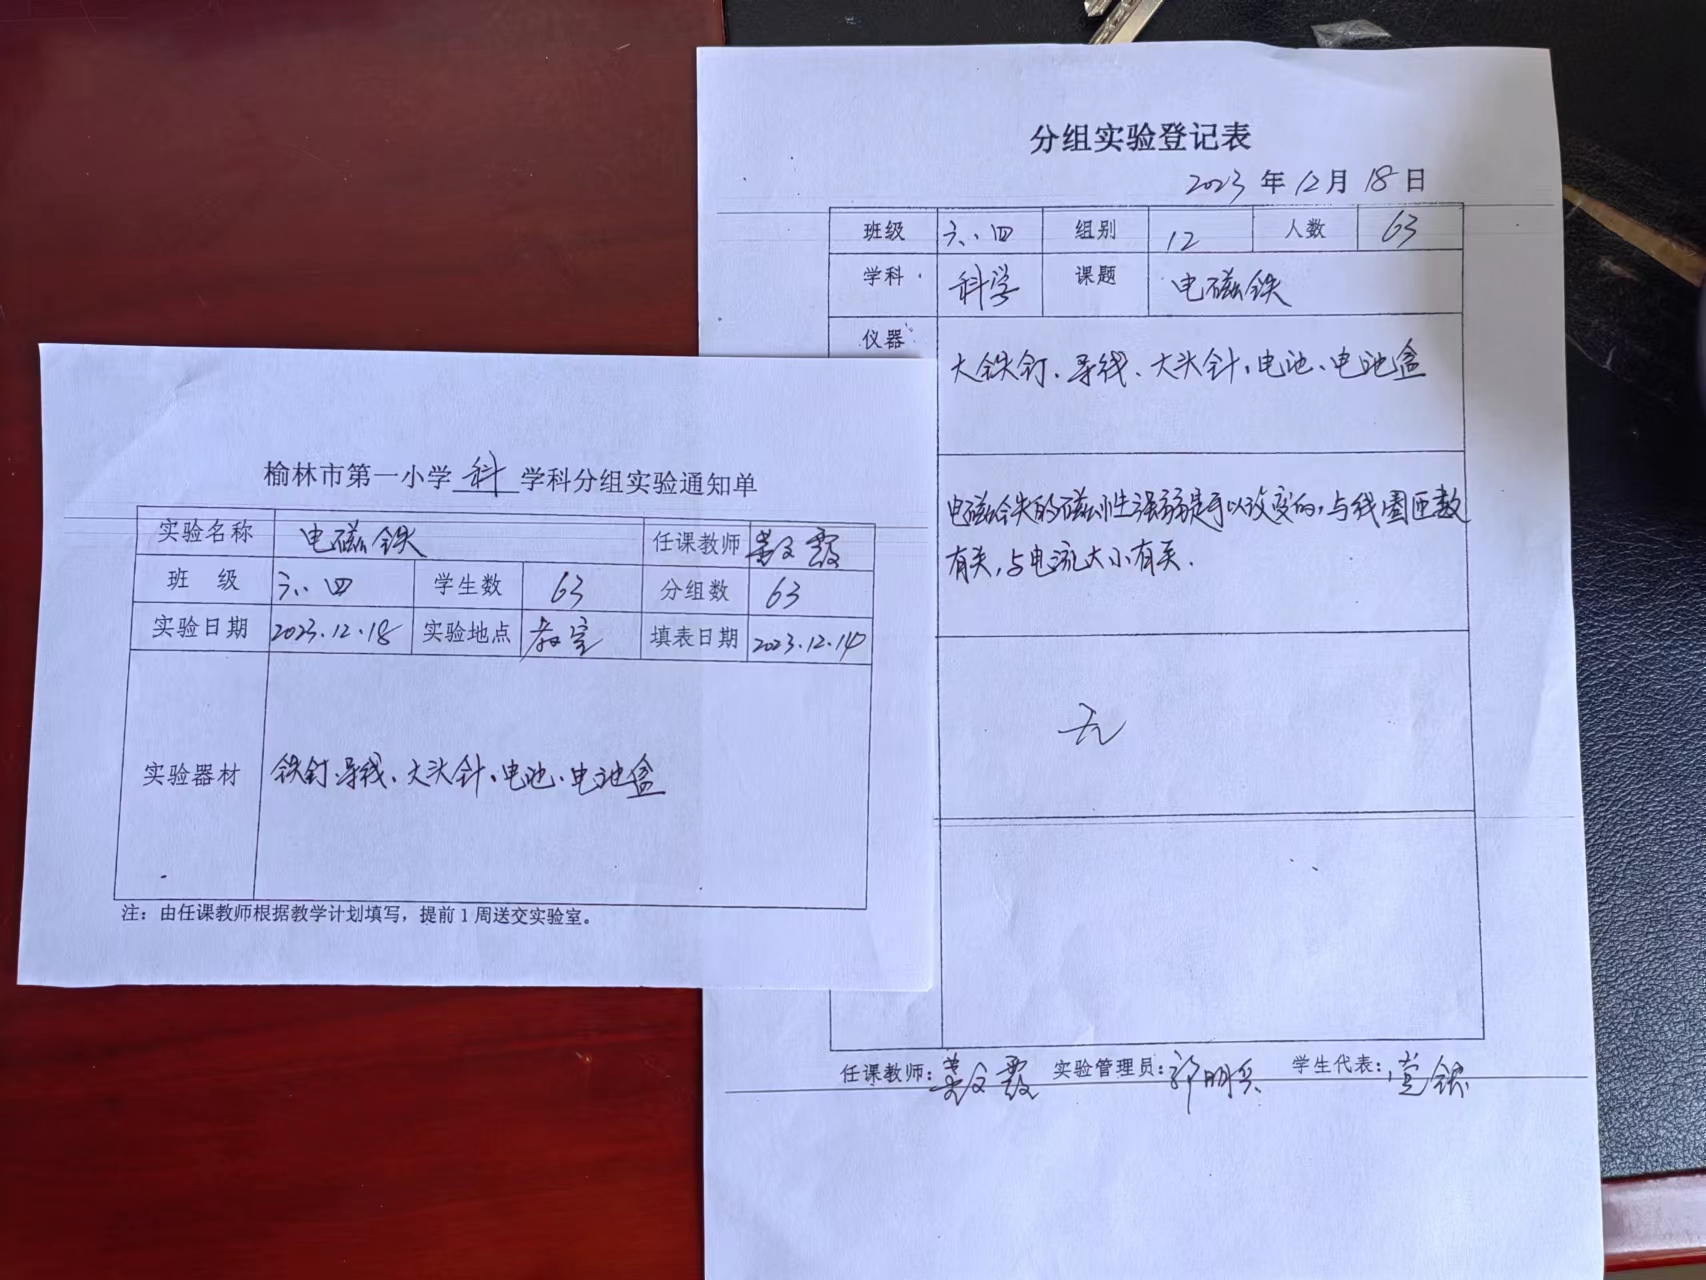 榆林市第一小学 科 学科分组实验通知单
实验名称 电磁铁 任课教师 霞
班 级 六.四 学生数 63 分组数 63
实验日期 2023.12.18 实验地点 教室 填表日期 2023.12.14
实验器材 铁钉、导线、大头针、电池、电池盒
注：由任课教师根据教学计划填写，提前1周送交实验室。
分组实验登记表
2023 年 12 月 18 日
班级 六.四 组别 12 人数 63
学科 科学 课题 电磁铁
仪器 大铁钉、导线、大头针、电池、电池盒
电磁铁的磁性强弱是可以改变的，与线圈匝数
有关，与电流大小有关.
无
任课教师: 霞 实验管理员: 郭明兵 学生代表: